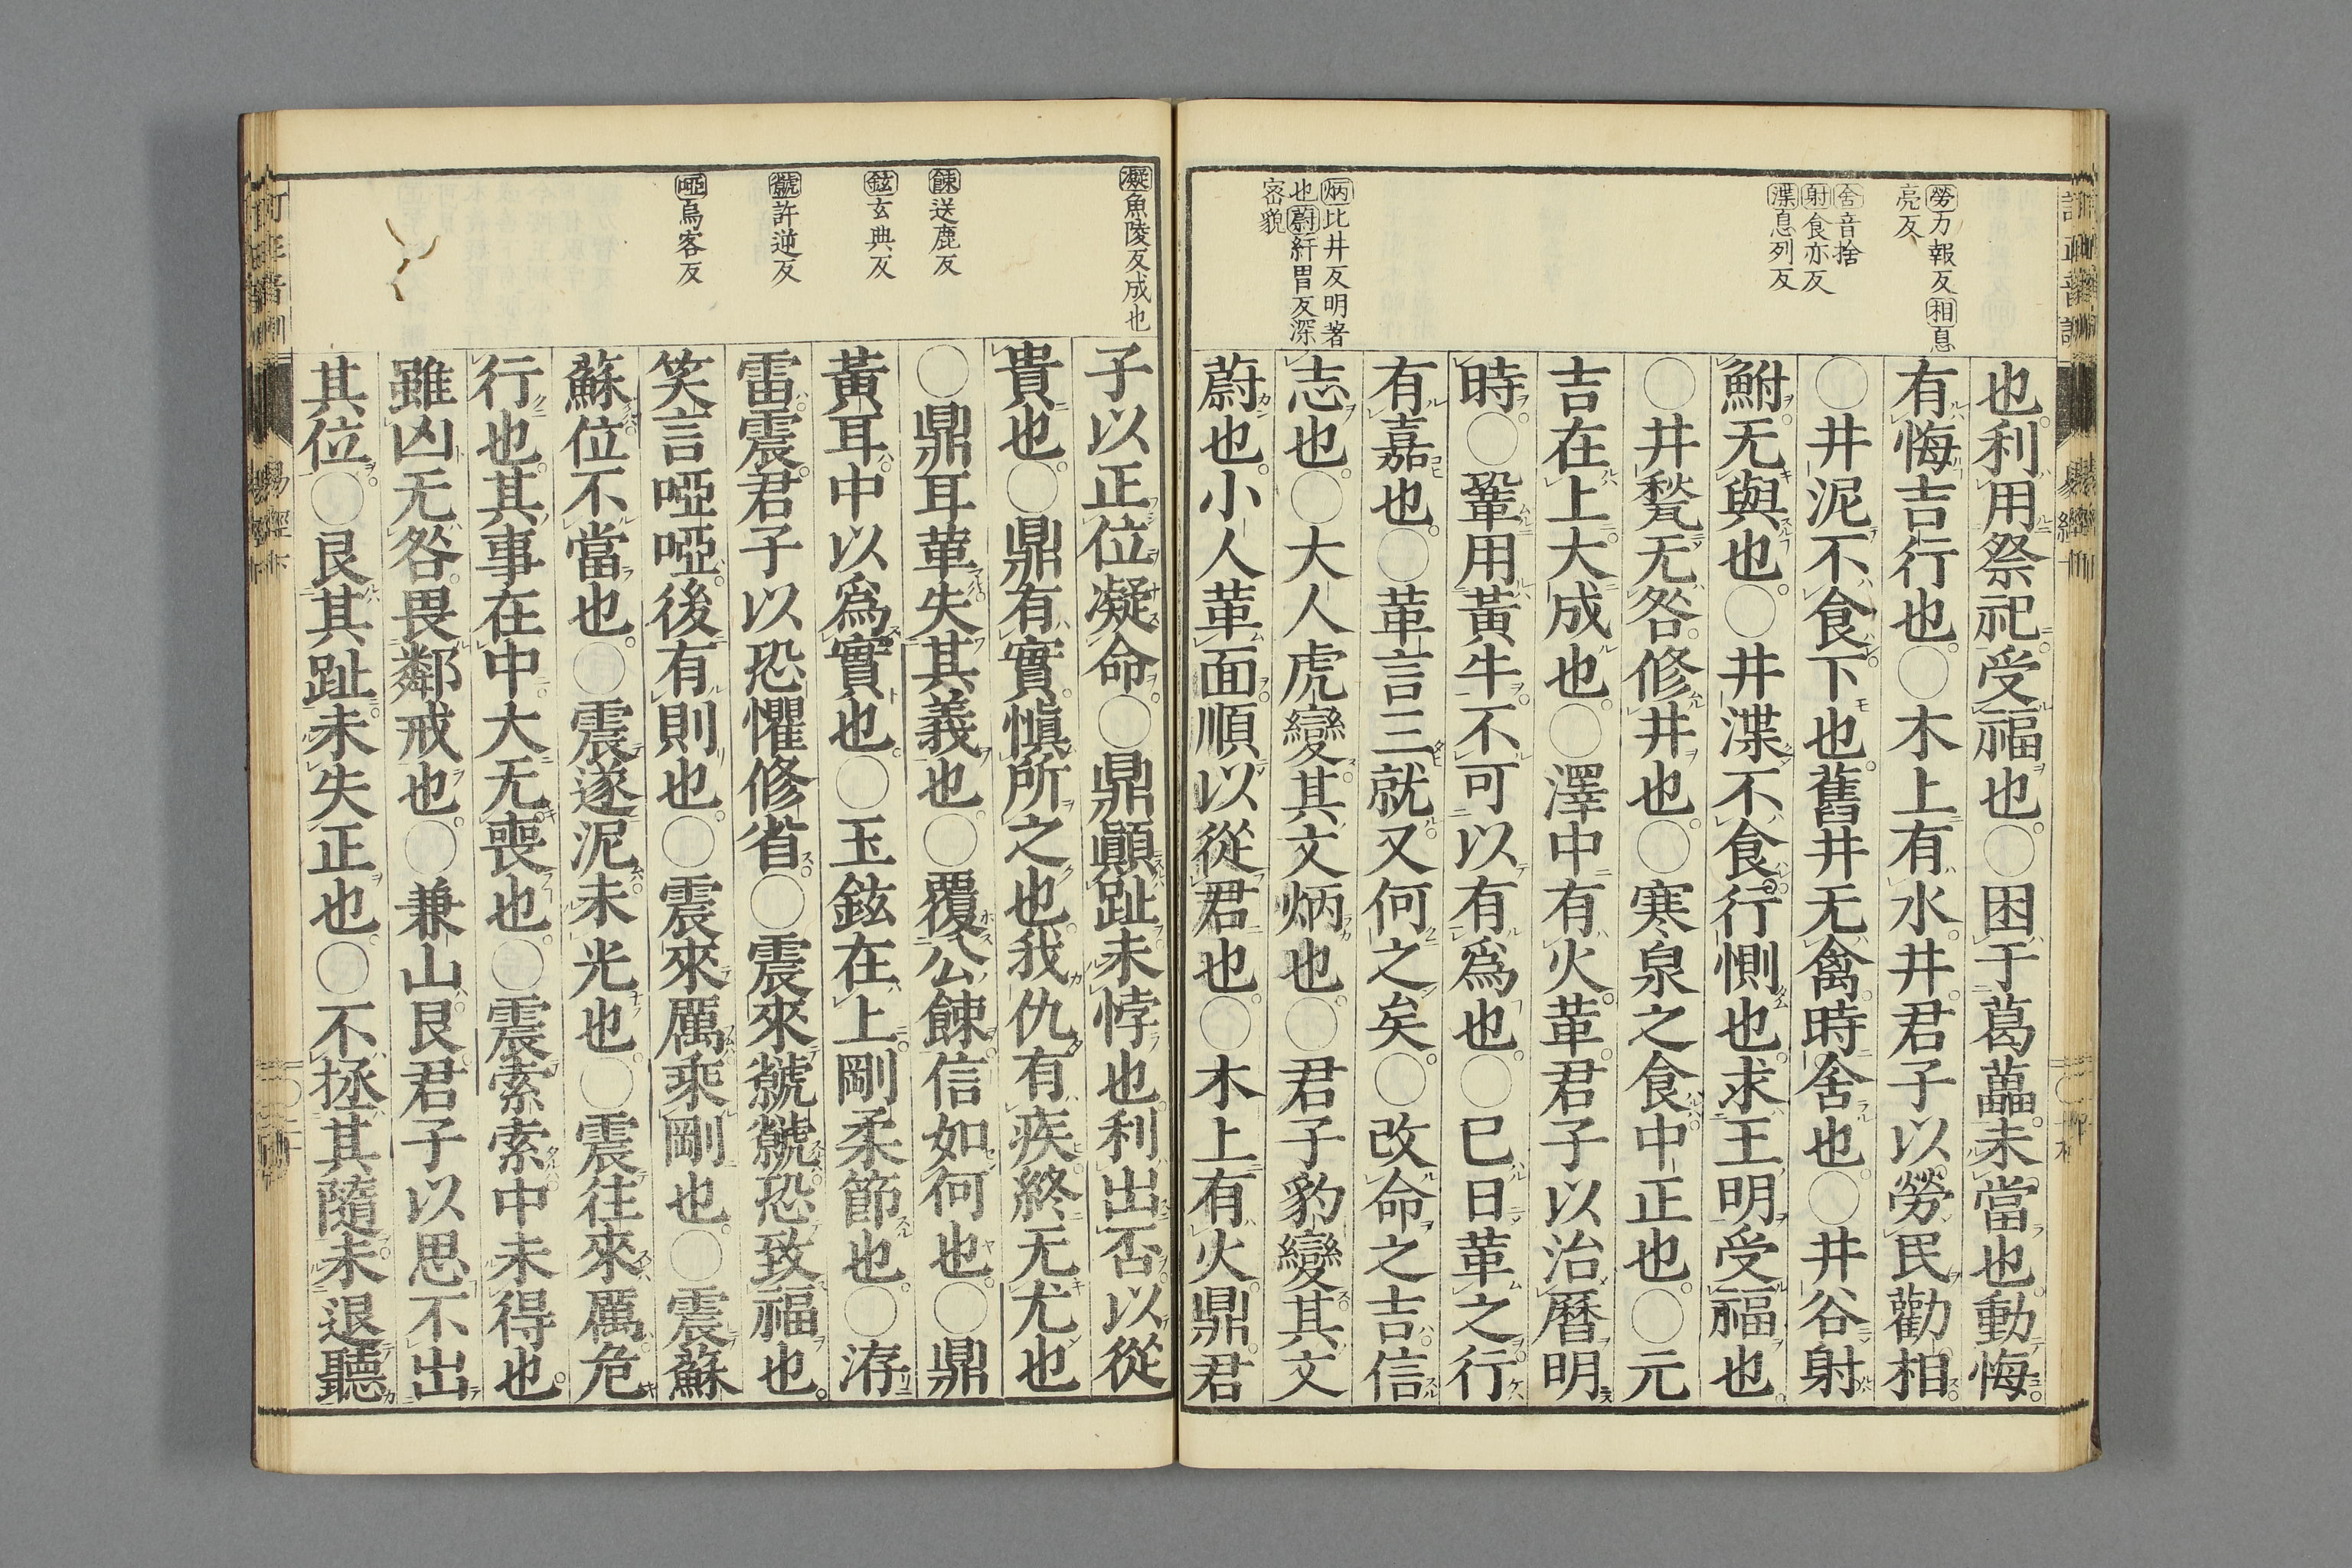 勞力報反相息
亮反
舍音捨
射食亦反
渫息列反
炳比井反明著
也蔚紆胃反深
密貌
也利用祭祀受福也○困于葛藟未當也動悔
有悔吉行也○木上有水井君子以勞民勸相
○井泥不食下也舊井无禽時舍也○井谷射
鮒无與也○井渫不食行惻也求王明受福也
○井甃无咎修井也○寒泉之食中正也○元
吉在上大成也○澤中有火革君子以治曆明
時○鞏用黃牛不可以有爲也○巳日革之行
有嘉也○革言三就又何之矣○改命之吉信
志也○大人虎變其文炳也○君子豹變其文
蔚也小人革面順以從君也○木上有火鼎君
凝魚陵反成也
餗送鹿反
鉉玄典反
虩許逆反
啞烏客反
子以正位凝命○鼎顚趾未悖也利出否以從
貴也○鼎有實愼所之也我仇有疾終无尤也
○鼎耳革失其義也○覆公餗信如何也○鼎
黃耳中以爲實也○玉鉉在上剛柔節也○洊
雷震君子以恐懼修省○震來虩虩恐致福也
笑言啞啞後有則也○震來厲乘剛也○震蘇
蘇位不當也○震遂泥未光也○震往來厲危
行也其事在中大无喪也○震索索中未得也
雖凶无咎畏鄰戒也○兼山艮君子以思不出
其位○艮其趾未失正也○不拯其隨未退聽